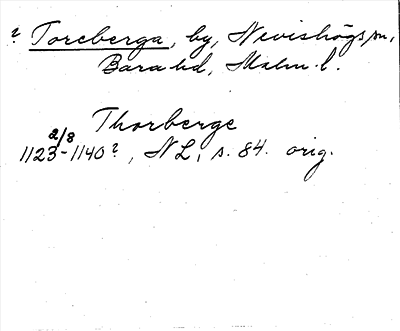 ? Toreberga, by, Nevishögs sn,
Bara hd, Malm. l.
Thorberge
2/8
1123-1140?, NL, s. 84. orig.